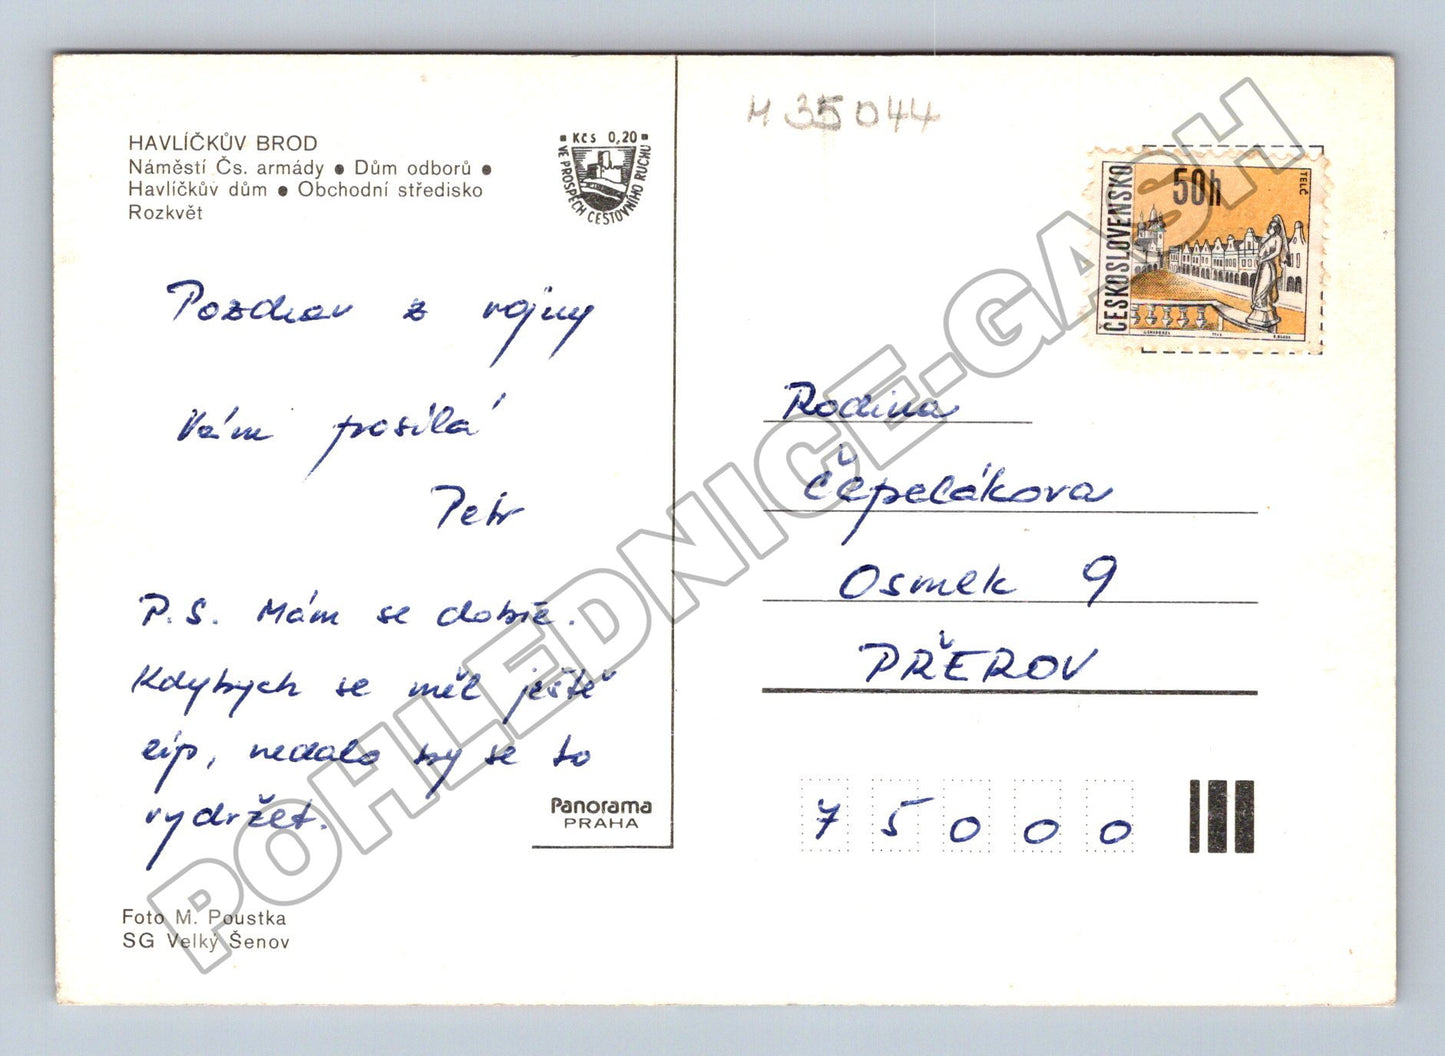 HAVLÍČKŮV BROD
Náměstí Čs. armády • Dům odborů •
Havlíčkův dům • Obchodní středisko
Rozkvět
Kčs 0,20
VE PROSPĚCH CESTOVNÍHO RUCHU
Pozdrav z vojny
Vám posílá
Petr
P.S. Mám se dobře.
Kdybych se měl ještě
líp, nedalo by se to
vydržet.
Panorama
PRAHA
Foto M. Poustka
SG Velký Šenov
M 35044
ČESKOSLOVENSKO
50h
TELČ
Rodina
Čepelákova
Osmek 9
PŘEROV
75000
POHLEDNICE-GASH